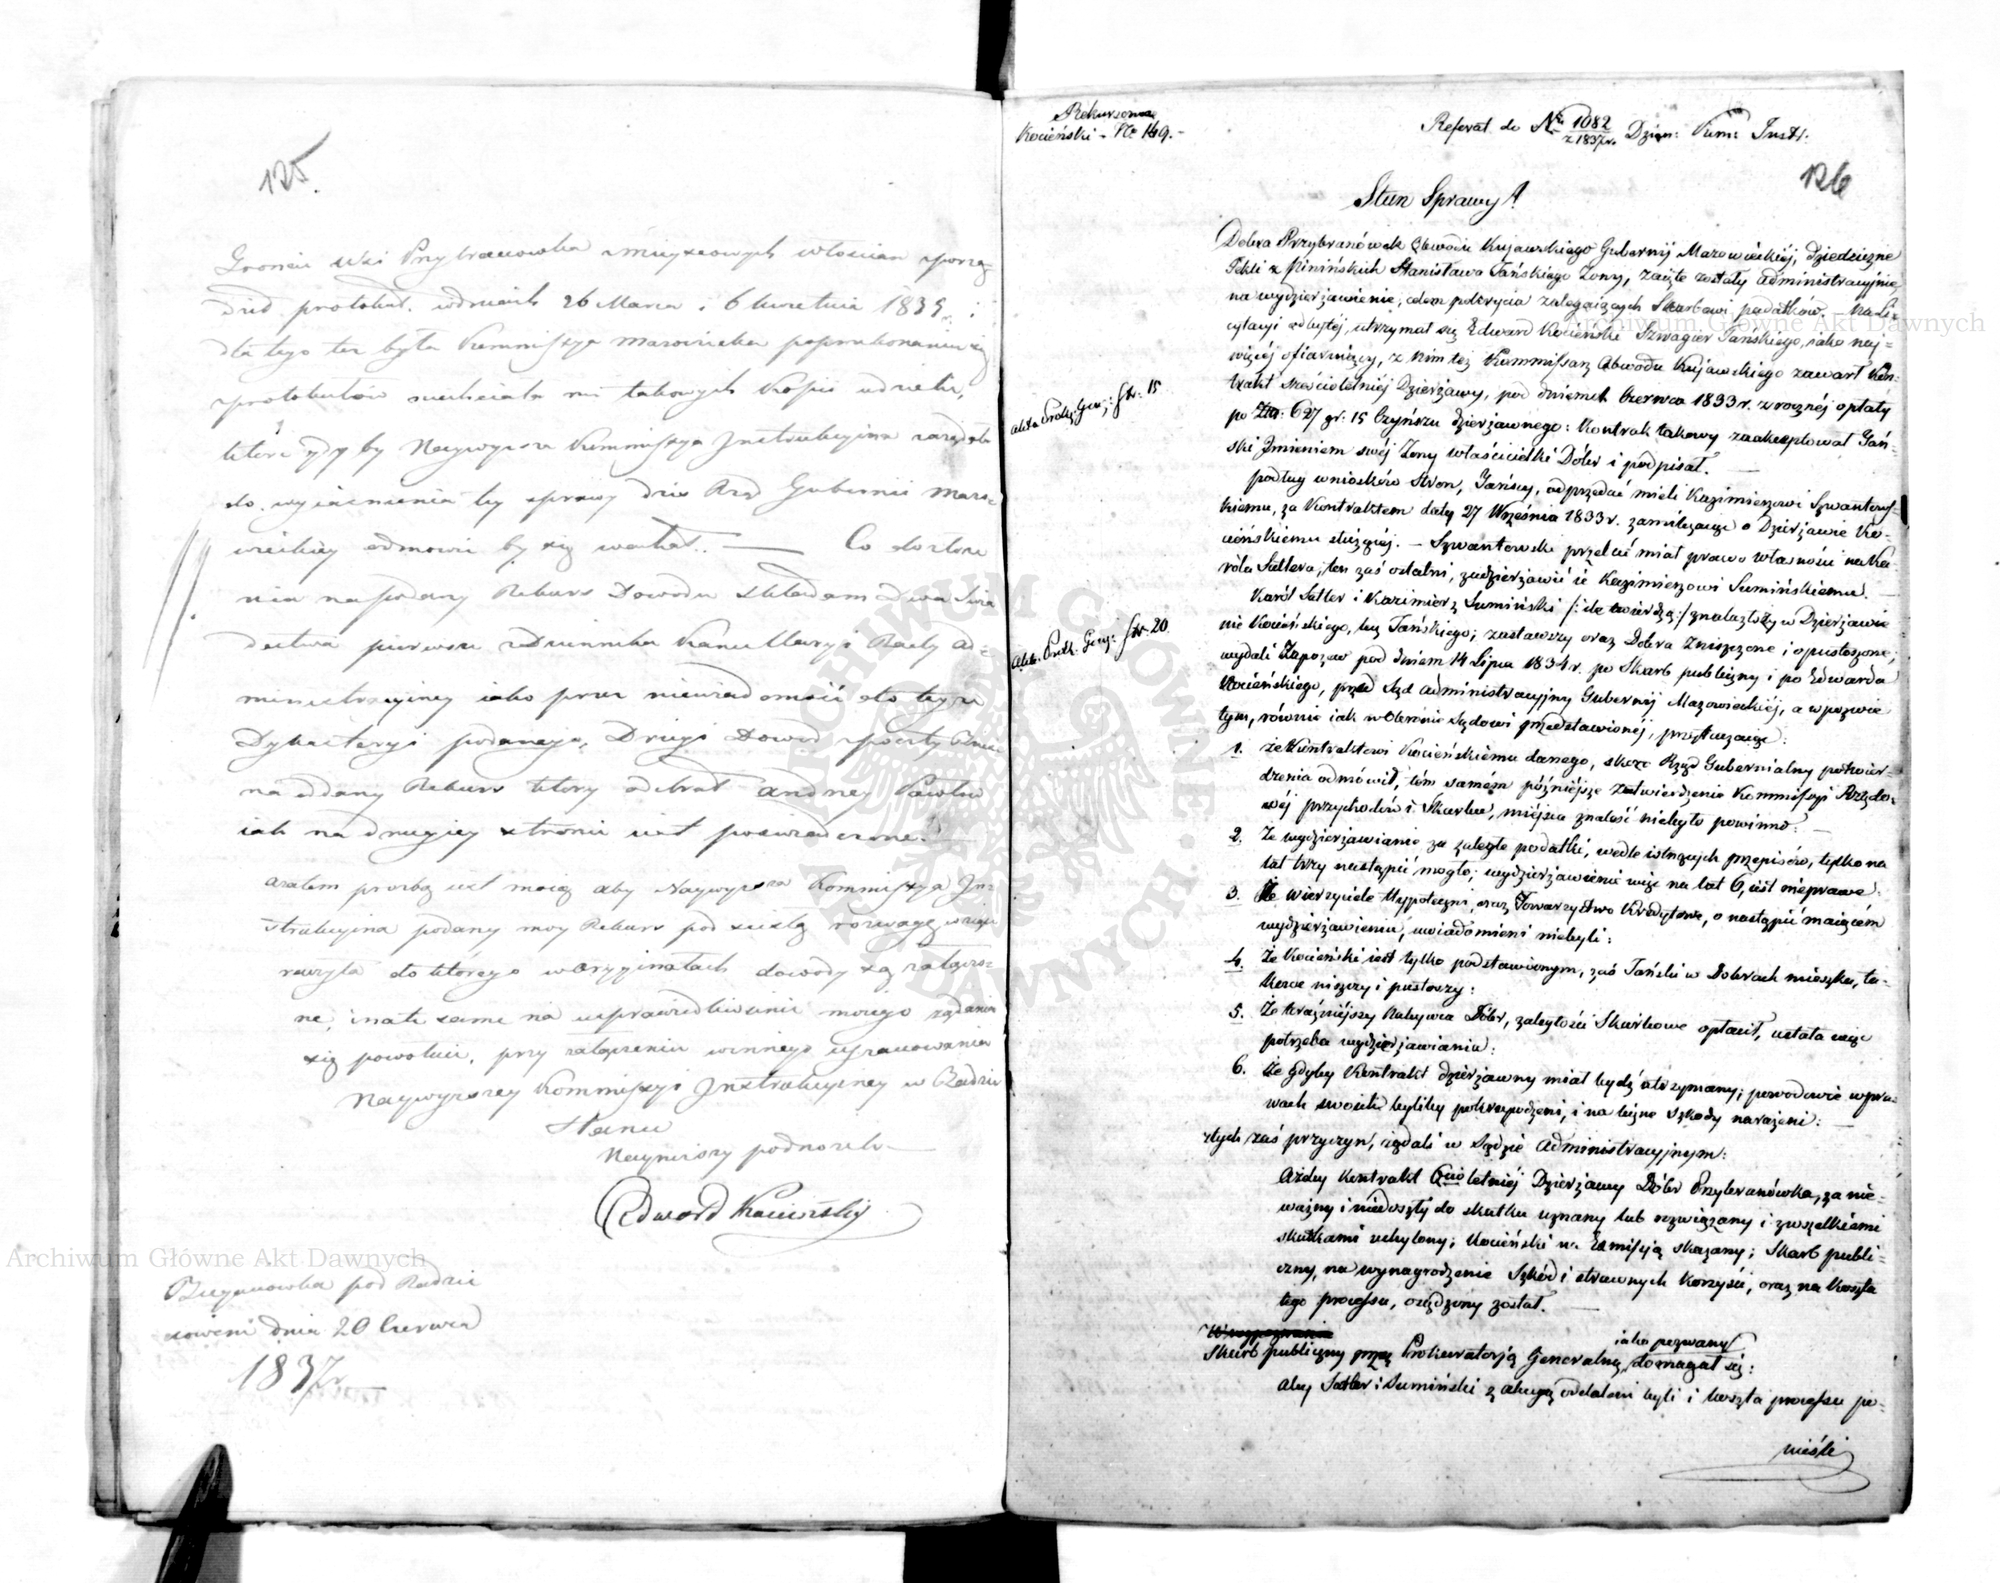 125.
Gromu Wsi Przybranowka zmieyscowych włościan sporzą
dził protokuł w dniach 26 Marca i 6 Kwietnia 1835 r. i
dla tego też była Kommissya Mazowiecka poprzekonaniu się
z protokułów niechciała mi takowych Kopii udzielić,
które gdyby Naywyższa Kommissya Instrukcyina zażądała
do wyiaśnienia tey sprawy dziś Rząd Gubernii Mazo-
wieckiey odmówić by się wachał. — Co do złoże
nia na podany Rekurs Dowodu składam Dwa Świa
dectwa pierwsze z Dziennika Kancellaryi Rady Ad-
ministracyiney iako przez niewiadomość do teyże
Dykasteryi podanego, Drugi Dowód Poczty
na oddany Rekurs który odebrał Andrzey Pawłow
iak na drugiey stronie iest poświadczone.
azatem prozbą iest moią aby Naywyższa Kommissya In-
strukcyina podany moy Rekurs pod ścisłą rozwagę wziąść
raczyła do którego w Oryginałach dowody są załączo-
ne, inate same na usprawiedliwienie moiego żądania
się powołuie, przy załączeniu winnego uszanowania
Naywyższey Kommissyi Instrukcyiney w Radzie
Stanu
Nayniższy podnożek
Edward Kocieński
Bieganowka pod Radzie
iowem dnia 20 Czerwca
1837 r.
Rekursowe
Kocieński – No 149. –
Referat do Nru 1082 z 1837 r. Dzien: Kom: Instr:
126
Stan Sprawy!
Dobra Przybranówek Obwodu Kujawskiego Gubernij Mazowieckiéj, dziedziczne
Tekli z Pinińskich Stanisława Tańskiego Żony, zajęte zostały administracyjnie
na wydzierżawienie, celem pokrycia zalegaiących Skarbowi podatków. – Na Li-
cytacyi odbytéj, utrzymał się Edward Kocieński Szwagier Tańskiego, iako naj-
więcéj ofiaruiący, z nim też Kommissarz Obwodu Kujawskiego zawarł Kon-
trakt sześcioletniéj Dzierżawy, pod dniem 4 Czerwca 1833 r. z rocznéj opłaty
po Złp: 627 gr: 15 Czynszu dzierżawnego: Kontrakt takowy zaakceptował Tań-
ski Imieniem swéj Żony właścicielki Dóbr i podpisał. —
podług wniosków Stron, Tańscy, odprzedać mieli Kazimierzowi Szwantows-
kiemu, za Kontraktem daty 27 Września 1833 r. zamilczając o Dzierżawie Ko-
cieńskiemu służącéj. – Szwantowski przelać miał prawo własności na Ka-
róla Sattera, ten zaś ostatni, zadzierżawić ie Kazimierzowi Sumińskiemu. —
Karól Satter i Kazimierz Sumiński /: ile twierdzą :/ znalazłszy w Dzierżawie
nie Kocieńskiego, lecz Tańskiego; zastawszy oraz Dobra zniszczone i opustoszone;
wydali Zapozew pod dniem 14 Lipca 1834 r. po Skarb publiczny i po Edwarda
Kocieńskiego, przed Sąd administracyjny Gubernij Mazowieckiéj, a w pozwie
tym, równie iak w Obronie Sądowi przedstawionéj, przytaczając:
Akta Prok: Gen: Str: 15
Akta Prok: Gen: Str: 20
1. że Kontraktowi Kocieńskiemu danego, skoro Rząd Gubernialny potwier-
dzenia odmówił, tém samém późniejsze zatwierdzenie Kommissyi Rządo-
wéj przychodów i Skarbu, miejsca znaleść niebyło powinno: —
2. Że wydzierżawienie za zaległe podatki, wedle istniejących przepisów, tylko na
lat trzy nastąpić mogło; wydzierżawienie więc na lat 6, iest nieprawe:
3. że wierzyciele Hypoteczni, oraz Towarzystwo Kredytowe, o nastąpić maiącém
wydzierżawieniu, uwiadomieni niebyli:
4. Że Kocieński iest tylko podstawionym, zaś Tański w Dobrach mieszka, ta-
kowe niszczy i pustoszy:
5. Że teraźniejszy Nabywca Dóbr, zaległości Skarbowe opłacił, ustała więc
potrzeba wydzierżawiania:
6. że gdyby Kontrakt dzierżawny miał bydź utrzymany; powodowie w pra-
wach swoich byliby pokrzywdzeni, i na liczne szkody narażeni: —
z tych zaś przyczyn, żądali w Sądzie Administracyjnym:
Ażeby Kontrakt 6cio letniéj Dzierżawy Dóbr Przybranówka, za nie-
ważny i niedoszły do skutku uznany lub rozwiązany i z wszelkiemi
skutkami uchylony; Kocieński na Exmissją skazany; Skarb publi-
czny, na wynagrodzenie Szkód i straconych korzyści, oraz na koszta
tego processu, osądzony został. —
Skarb publiczny przez Prokuratorją Generalną, iako pozwany domagał się:
aby Satter i Sumiński z skargą oddaleni byli i koszta processu po-
nieśli
Archiwum Główne Akt Dawnych
Archiwum Główne Akt Dawnych
ARCHIWUM GŁÓWNE AKT DAWNYCH